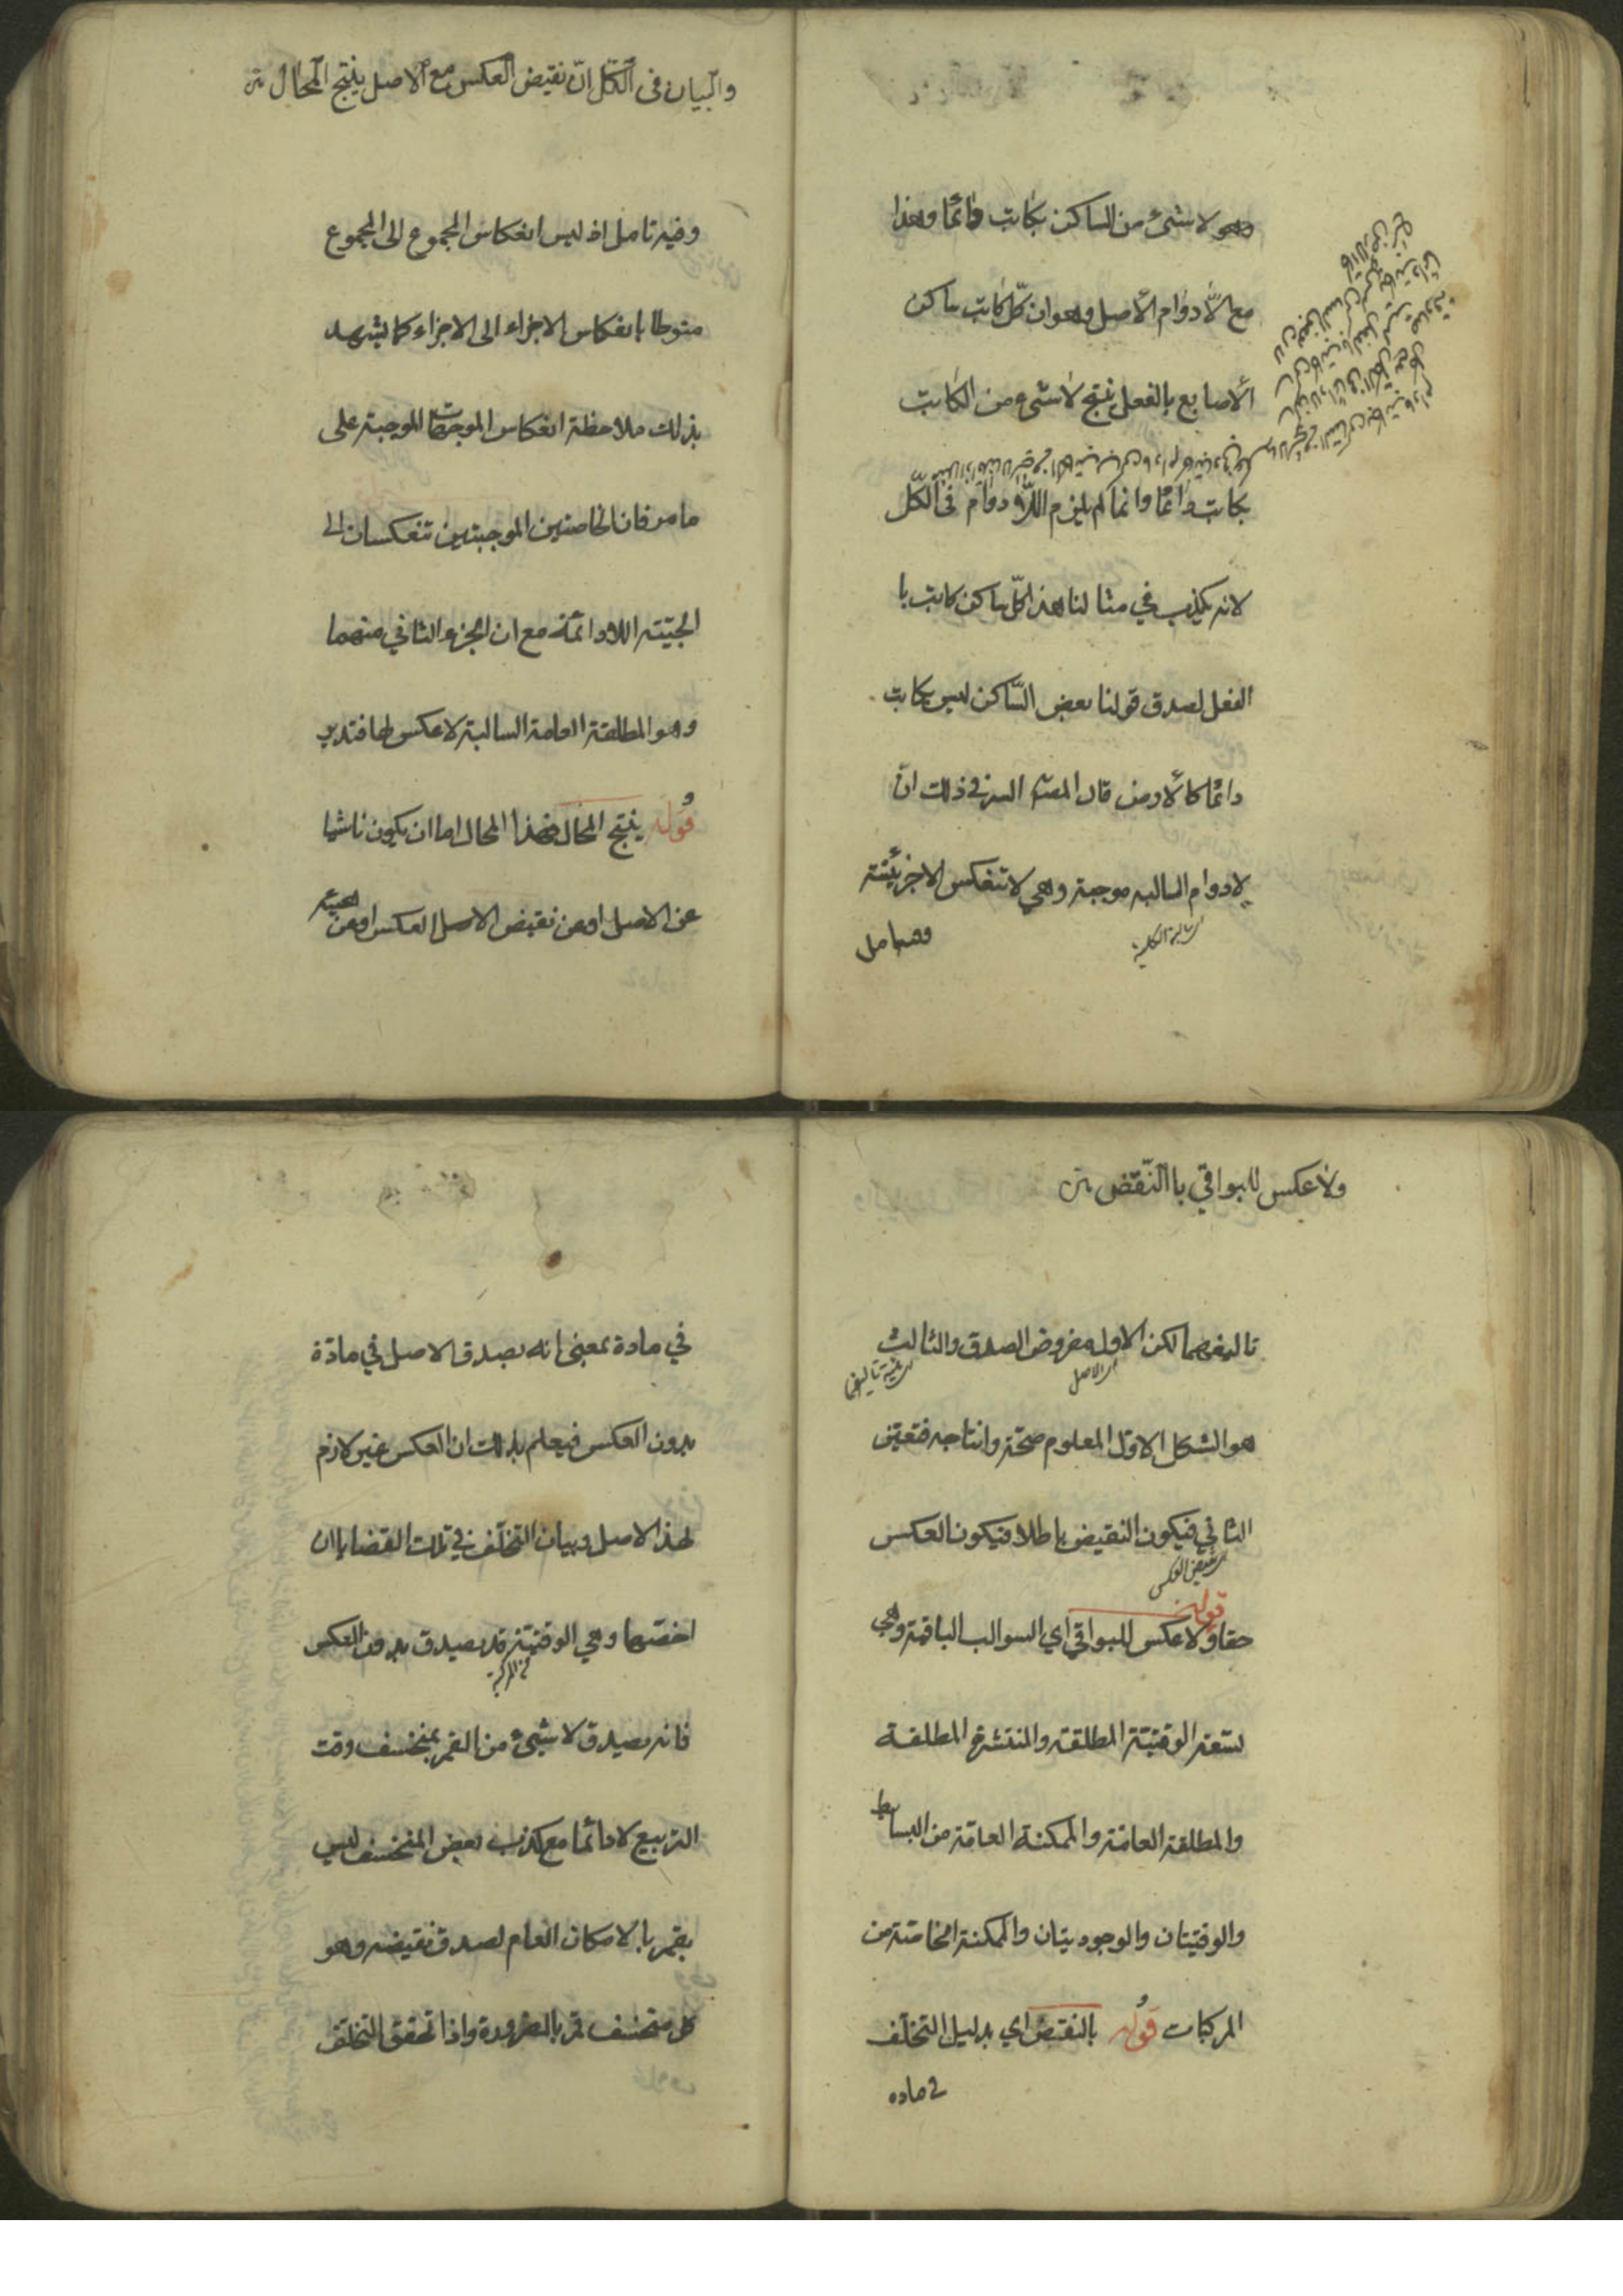 وهو لا شئ من الساكن بكاتب دائمًا وهذا
مع اللّا دوام الأصل وهو ان كلّ كاتب ساكن
الأصابع بالفعل ينتج لا شئ من الكاتب
بكاتب دائمًا وانما لم يلزم اللّا دوام فى الكلّ
لانه يكذب في مثالنا هذا كلّ ساكن كاتب با
الفعل لصدق قولنا بعض السّاكن ليس بكاتب
دائمًا كالأرض قال المص السر في ذلك انّ
لا دوام السالبه موجبة وهي لا تنعكس الا جزئيّة
اى سالبة الكلية
وفيه تامل
والبيان فى الكلّ انّ نقيض العكس مع الاصل ينتج المحال متن
وفيه تامل اذ ليس انعكاس المجموع الى المجموع
منوطا بانعكاس الاجزاء الى الاجزاء كما يشهد
بذلك ملاحظة انعكاس الموجهات الموجبة على
ما مر فان الخاصتين الموجبتين تنعكسان الى
الحينية اللادائمة مع ان الجزء الثاني منهما
وهو المطلقة العامة السالبة لا عكس لها فتدبر
قوله ينتج المحال فهذا المحال اما ان يكون ناشيا
عن الاصل او عن نقيض الاصل العكس او عن هيئة
ولا عكس للبواقي باالنّقض متن
تاليفهما لكن الاول مفروض الصدق والثالث
اى الاصل
اى هيئة تاليفهما
هو الشكل الاوّل المعلوم صحته وانتاجه فتعين
الثاني فيكون النقيض باطلا فيكون العكس
اى نقيض العكس
حقا قوله ولا عكس للبواقي اي السوالب الباقية وهي
تسعة الوقتيّة المطلقة والمنتشرة المطلقة
والمطلقة العامّة والممكنة العامّة من البسائط
والوقتيتان والوجوديتان والممكنة الخاصّة من
المركبات قوله بالنقض اي بدليل التخلّف
في ماده
في مادة بمعنى انه يصدق الاصل في مادّة
بدون العكس فيعلم بذلك ان العكس غير لازم
لهذا الاصل وبيان التخلّف في تلك القضايا ان
اخصّها وهي الوقتيّة قد يصدق بدون العكس
اى المركبة
فانه يصدق لا شيئ من القمر بمنخسف وقت
التربيع لا دائما مع كذب بعض المنخسف ليس
بقمر بالامكان العام لصدق نقيضه وهو
كل منخسف قمر بالضرورة واذا تحقق التخلّف